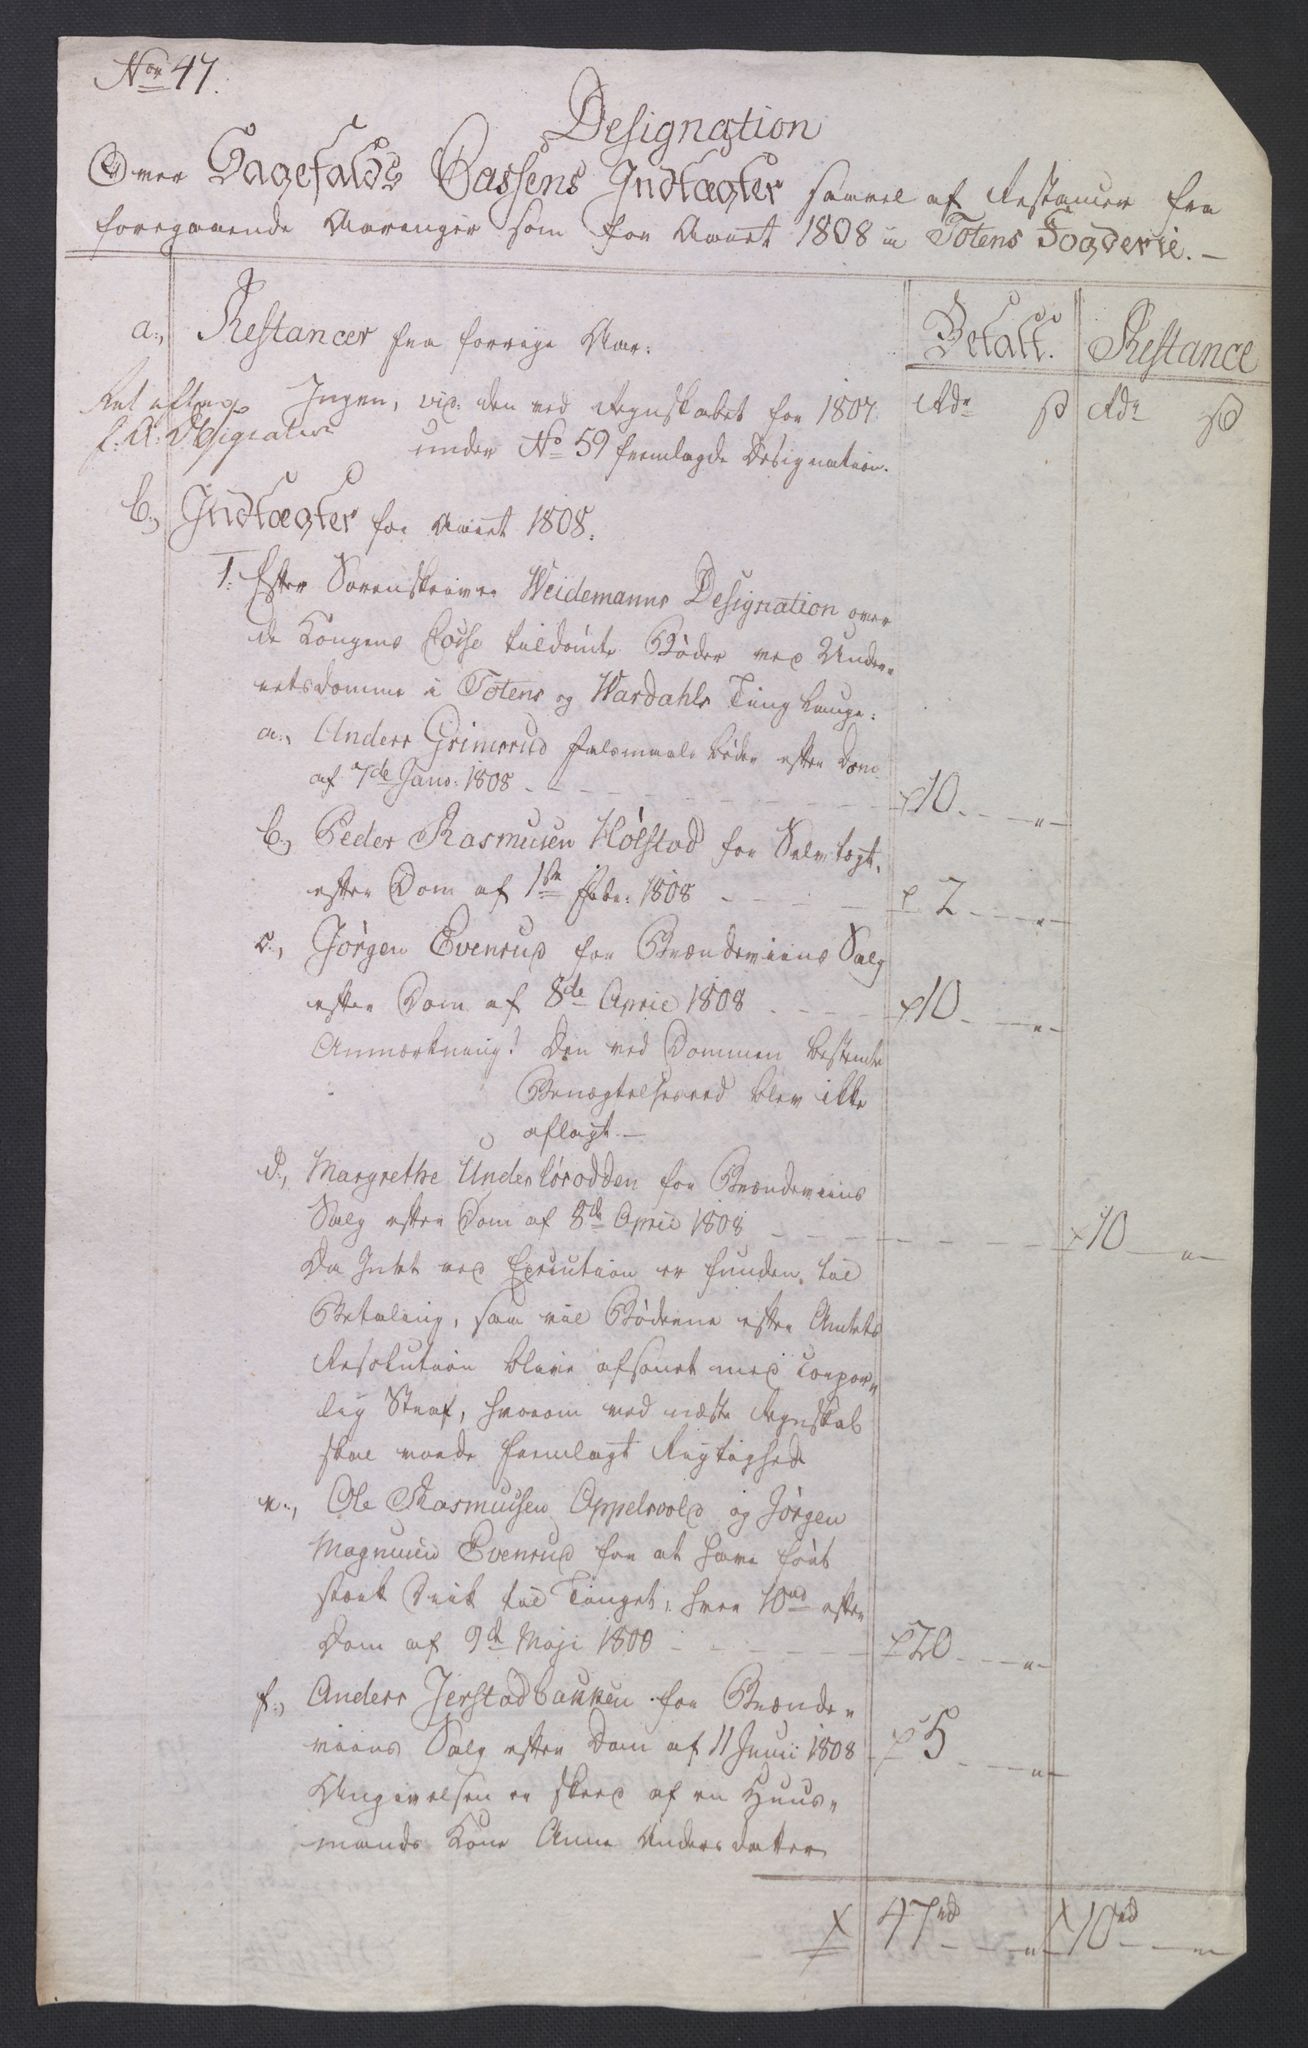 No 47.
Designation
Over Sagefalds Cassens Indtægter saavel af Restancer fra
foregaaende Aaringer som for Aaret 1808 i Totens Fogderie. —
a., Restancer fra forrige Aar.
Betalt. Restance
Ingen, vid: den ved Regnskabet for 1807
Rdr ß Rdr ß
under No 59 fremlagde Designation.
b., Indtægter for Aaret 1808.
1. Efter Sorenskriver Weidemanns Designation over
de Kongens Casse tildømte Bøder ved Under-
retsdomme i Totens og Wardahls Ting Lauge.
a., Anders Grimsrud Leiermaals Bøder efter Dom
af 7de Janr: 1808 10 "
b., Peder Rasmusen Hølstad for Selvtægt,
efter Dom af 1ste Febr: 1808 2 "
c., Jørgen Evensrud for Brændeviins Salg
efter Dom af 8de April 1808 10 "
Anmærkning! Den ved Dommen bestemte
Benægtelseseed blev ikke
aflagt —
d., Margrethe Underlørodden for Brændeviins
Salg efter Dom af 8de April 1808 10 "
Da Intet ved Execution er funden til
Betaling, saa vil Bøderne efter Amtets
Resolution blive afsonet med corpor-
lig Straf, hvorom ved næste Regnskab
skal vorde fremlagt Rigtighed
e., Ole Rasmussen Appelsvold og Jørgen
Magnusen Evensrud for at have ført
stærk Drik til Tinget, hver 10rd efter
Dom af 9de Maji 1808 20 "
f., Anders Jerstadbakken for Brænde-
viins Salg efter Dom af 11 Junii 1808 5 "
Angivelsen er skeed af en Huus-
mands Kone Anne Andersdatter
47rd " 10rd "